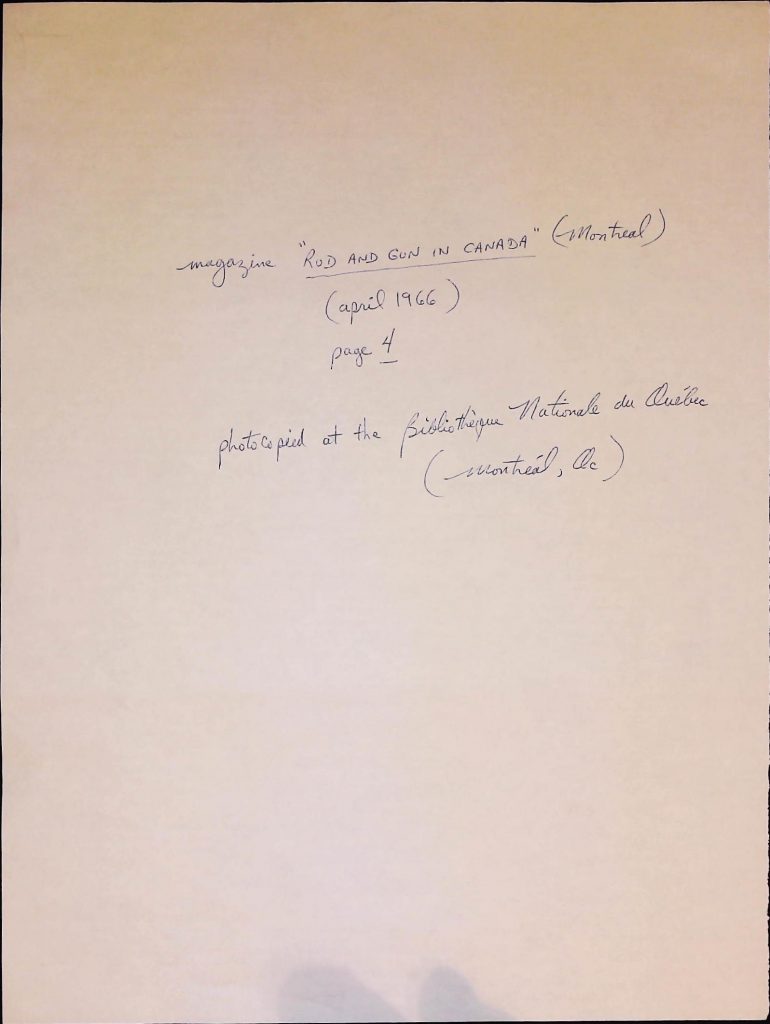 magazine "ROD AND GUN IN CANADA" (Montreal)
(april 1966)
page 4
photocopied at the Bibliothèque Nationale du Québec
(Montréal, Qc)